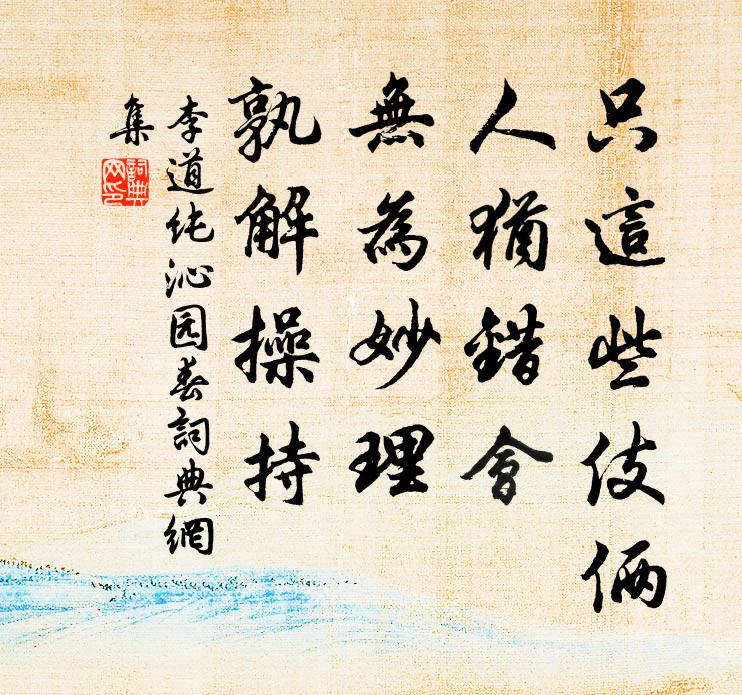 只這些伎倆
人猶錯會
無為妙理
孰解操持
李道纯沁园春詞典網
集
詞典網印